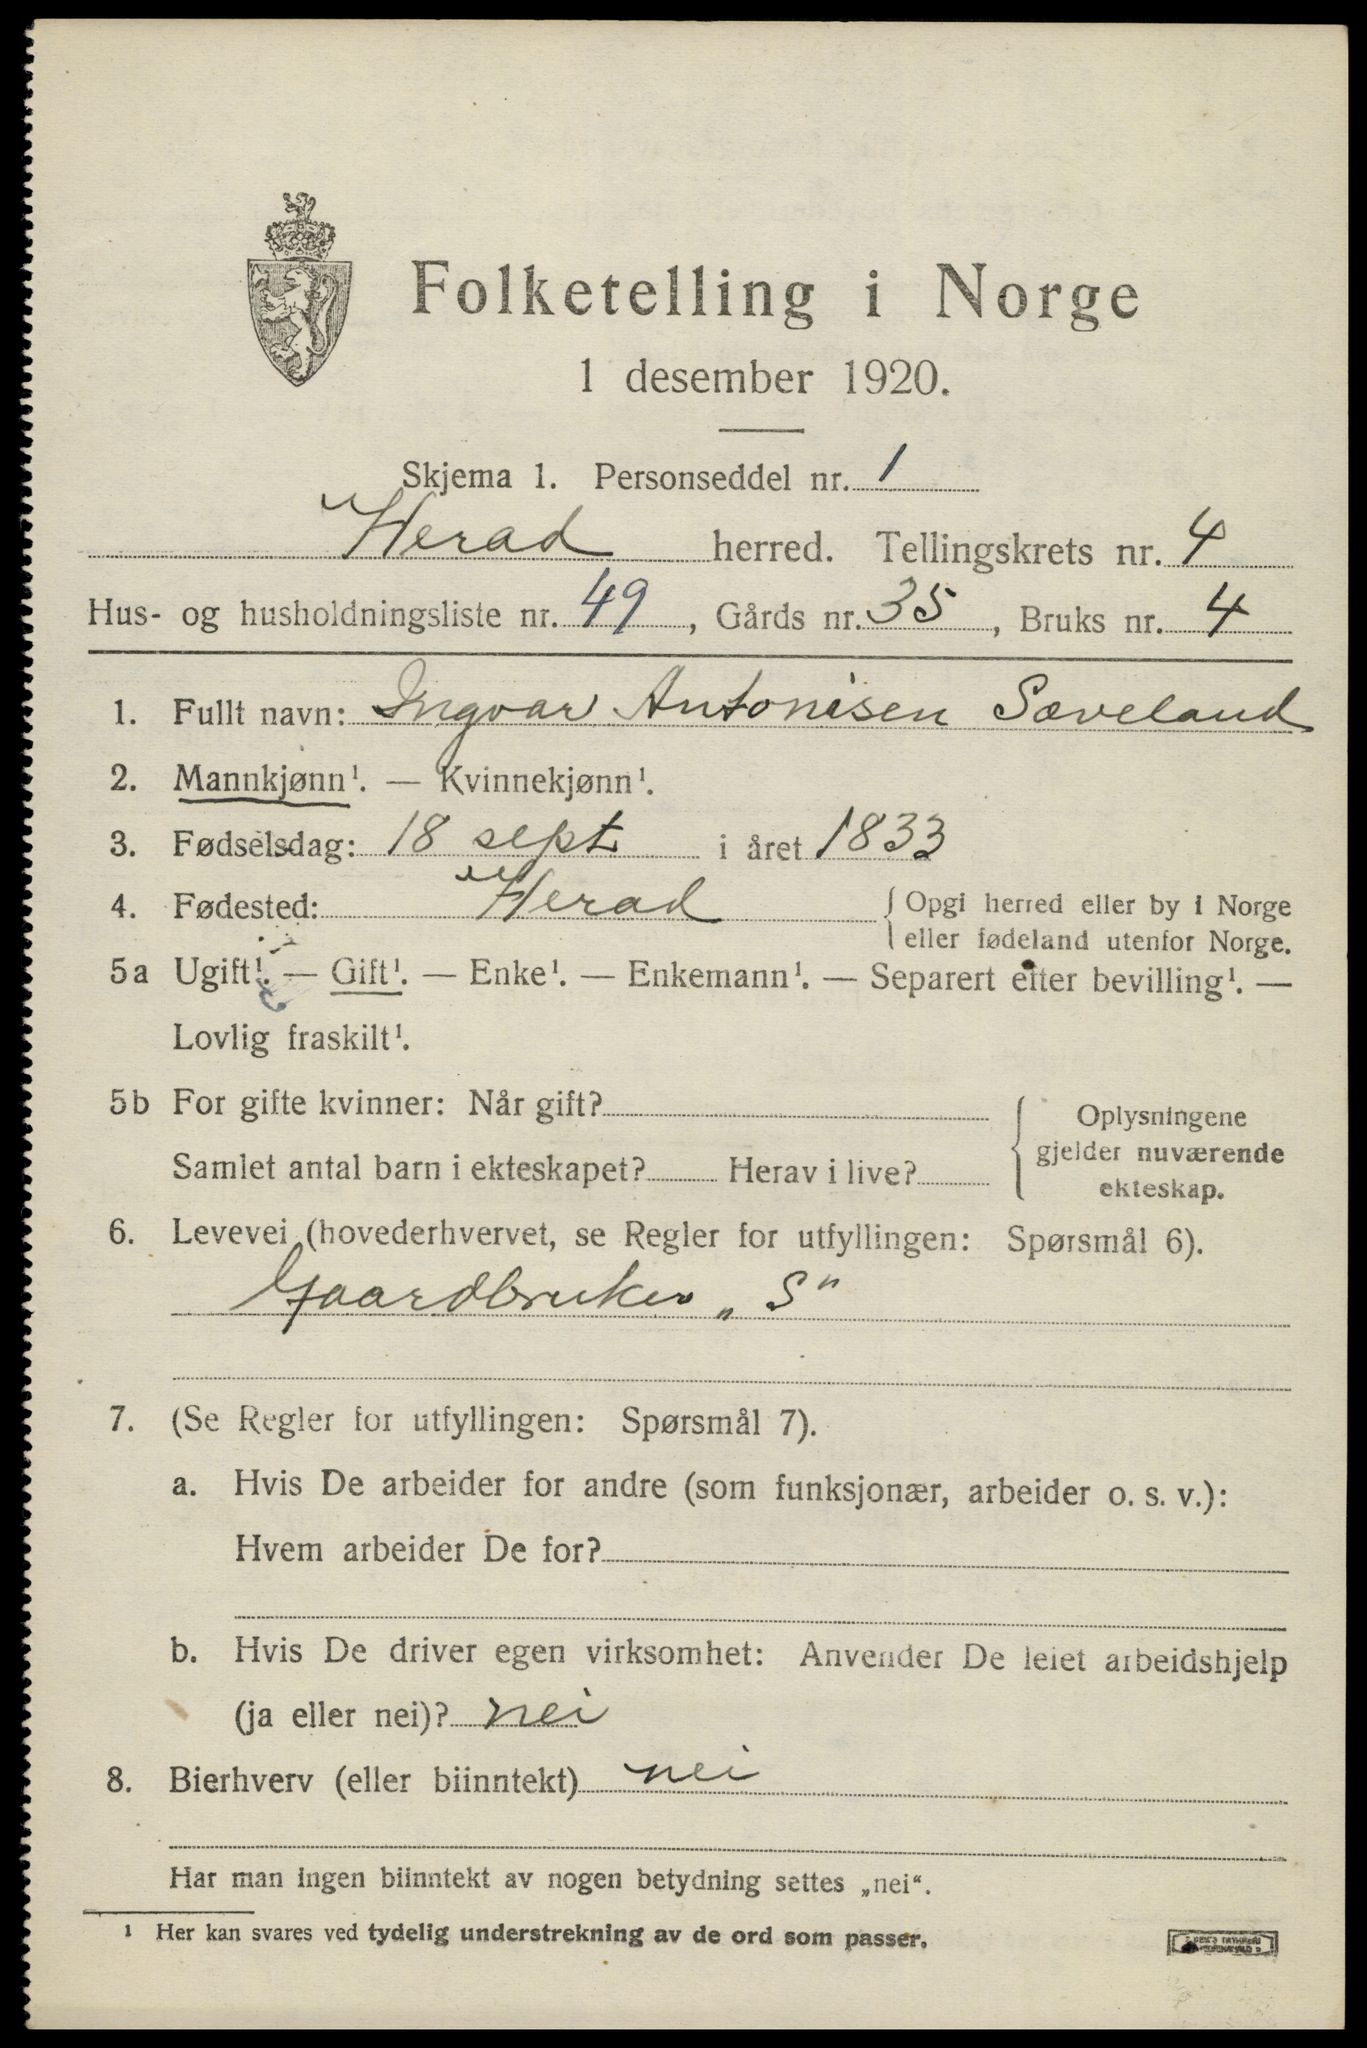 Folketelling i Norge
1 desember 1920.
Skjema 1. Personseddel nr. 1
Herad herred. Tellingskrets nr. 4
Hus- og husholdningsliste nr. 49, Gårds nr. 35, Bruks nr. 4
1. Fullt navn: Ingvar Antonisen Sæveland
2. Mannkjønn¹. — Kvinnekjønn¹.
3. Fødselsdag: 18 sept i året 1833
4. Fødested: Herad { Opgi herred eller by i Norge
{ eller fødeland utenfor Norge.
5a Ugift¹. — Gift¹. — Enke¹. — Enkemann¹. — Separert efter bevilling¹. —
Lovlig fraskilt¹.
5b For gifte kvinner: Når gift?
Samlet antal barn i ekteskapet? Herav i live?
Oplysningene
gjelder nuværende
ekteskap.
6. Levevei (hovederhvervet, se Regler for utfyllingen: Spørsmål 6).
Gaardbruker „S“
7. (Se Regler for utfyllingen: Spørsmål 7).
a. Hvis De arbeider for andre (som funksjonær, arbeider o. s. v.):
Hvem arbeider De for?
b. Hvis De driver egen virksomhet: Anvender De leiet arbeidshjelp
(ja eller nei)? nei
8. Bierhverv (eller biinntekt) nei
Har man ingen biinntekt av nogen betydning settes „nei“.
¹ Her kan svares ved tydelig understrekning av de ord som passer.